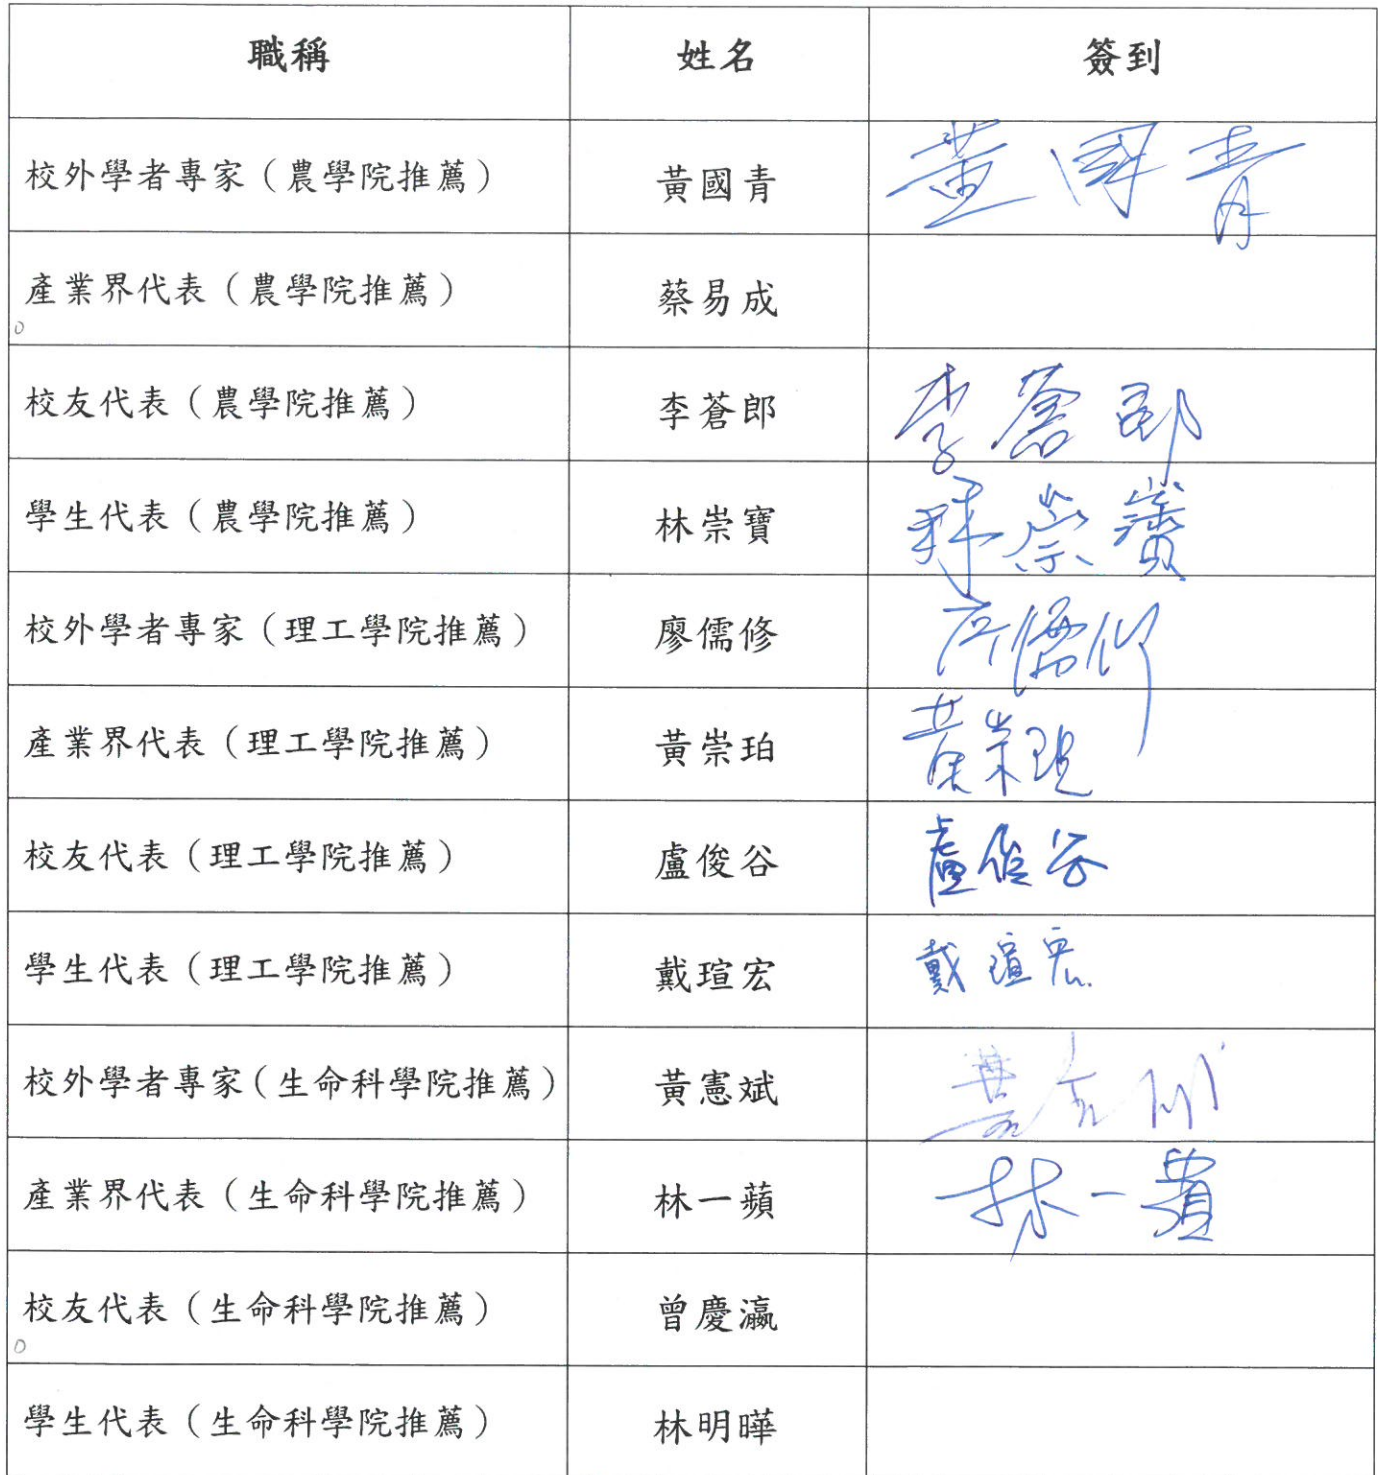 職稱 姓名 簽到
校外學者專家（農學院推薦） 黃國青 黃國青
產業界代表（農學院推薦） 蔡易成
校友代表（農學院推薦） 李蒼郎 李蒼郎
學生代表（農學院推薦） 林崇寶 林崇寶
校外學者專家（理工學院推薦） 廖儒修 廖儒修
產業界代表（理工學院推薦） 黃崇珀 黃崇珀
校友代表（理工學院推薦） 盧俊谷 盧俊谷
學生代表（理工學院推薦） 戴瑄宏 戴瑄宏
校外學者專家（生命科學院推薦） 黃憲斌
產業界代表（生命科學院推薦） 林一蘋 林一蘋
校友代表（生命科學院推薦） 曾慶瀛
學生代表（生命科學院推薦） 林明曄